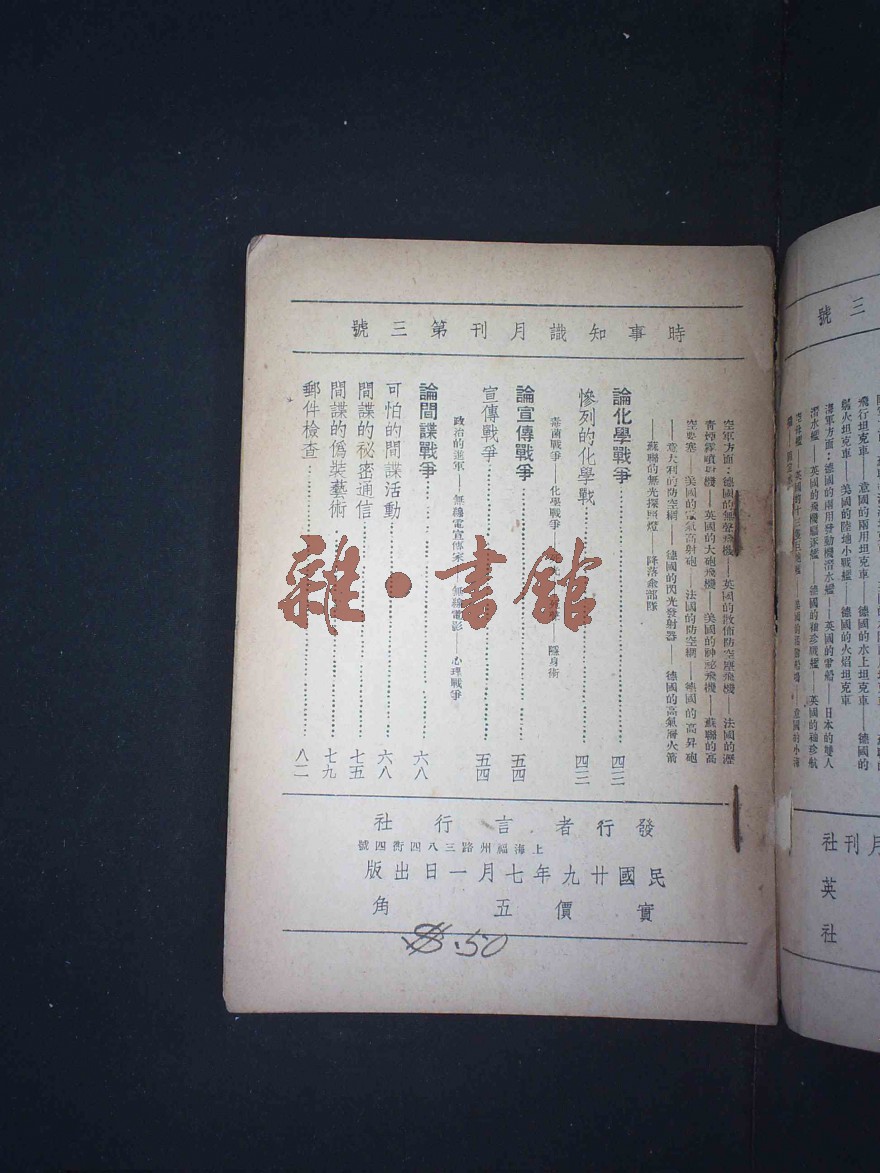 時事知識月刊第三號
空軍方面：德國的無聲飛機——英國的散佈防空塵飛機——法國的瀝
青煙霧噴射機——英國的大砲飛機——美國的神祕飛機——蘇聯的高
空要塞——美國的電氣高射砲——法國的防空網——德國的高昇砲
——意大利的防空網——德國的閃光發射器——德國的高氣層火箭
——蘇聯的無光探照燈——降落傘部隊
論化學戰爭 四三
慘列的化學戰 四三
毒菌戰爭——化學戰爭——隱身術
論宣傳戰爭 五四
宣傳戰爭 五四
政治的進軍——無線電宣傳家——無線電影——心理戰爭
論間諜戰爭 六八
可怕的間諜活動 六八
間諜的祕密通信 七五
間諜的偽裝藝術 七九
郵件檢查 八二
發行者言行社
上海福州路三八四衖四號
民國廿九年七月一日出版
實價五角
.50
雜·書館
三號
飛行坦克車——意國的兩用坦克車——德國的水上坦克車——德國的
噴火坦克車——美國的陸地小戰艦——德國的火焰坦克車
海軍方面：德國的兩用發動機潛水艦——英國的常船——日本的雙人
潛水艦——英國的飛機驅逐艦——德國的袖珍戰艦——英國的袖珍航
月刊社
英社